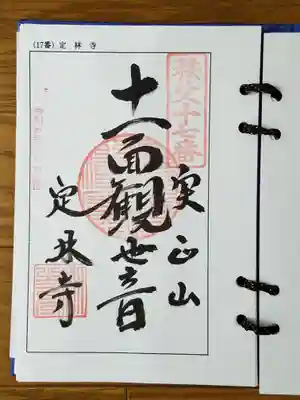 (17番) 定林寺
秩父十七番
実正山
十一面観世音
定林寺